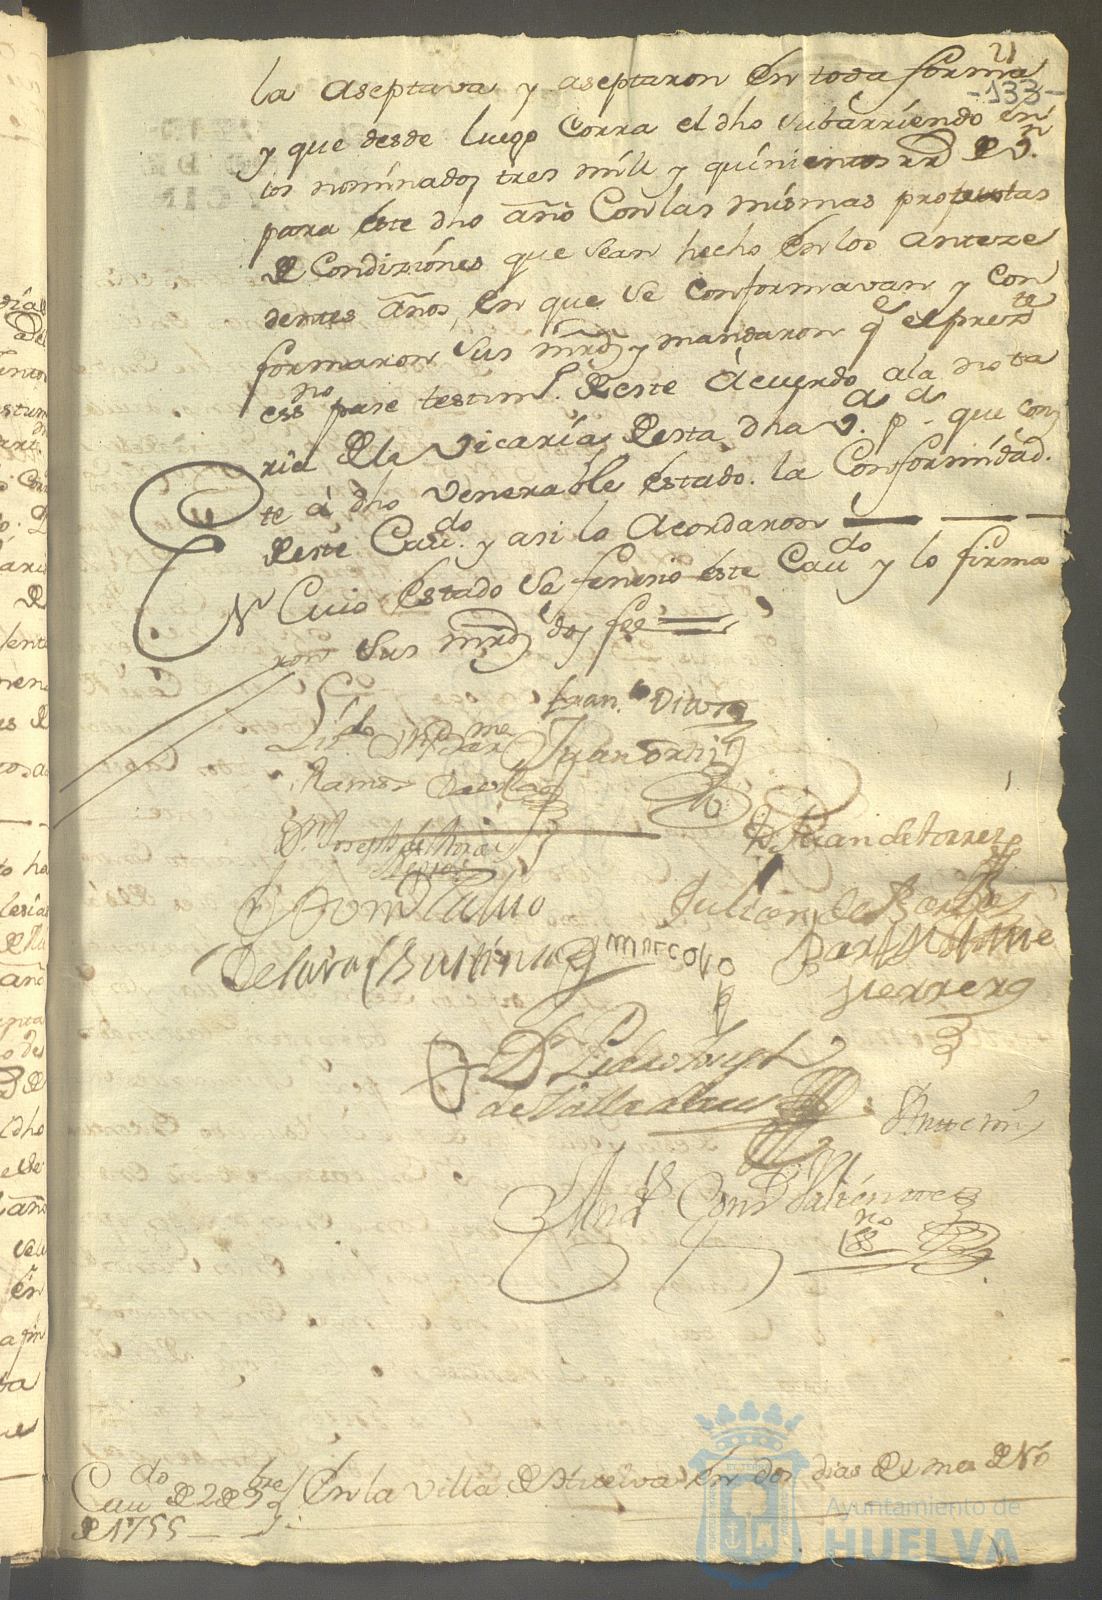 21
-133-
la aseptava y aseptaron en toda forma
y que desde luego Corra el dho subarriendo en
los nominados tres mill y quinientos rrs de Vn
para este dho año Con las mismas protextas
de Condiziones que sean hecho en los anteze
dentes años, en que se Conformavan y Con
formaron sus mrds y mandaron q el preste
essno pase testimo. deste Acuerdo ala nota
ria de la Vicaría desta dha V. pa. que cons
te á dho venerable estado. la Conformidad.
deste Caudo. y asi lo Acordaron
En Cuio estado se fenezio este Caudo y lo firma
ron sus mrds doy fee
Fran.co Diaz
Juan Ortiz
Ramos
Dn. Joseph de
Dn Juan de Torres
Julian de
Bartolome
Herrero
marcos
Dn Pedro Joseph
de Valladares
Ante mi
Valiente
essno
Caudo de 2 de 9bre
de 1755
En la Villa de Huelva en dos dias del mes de No
Ayuntamiento de
HUELVA